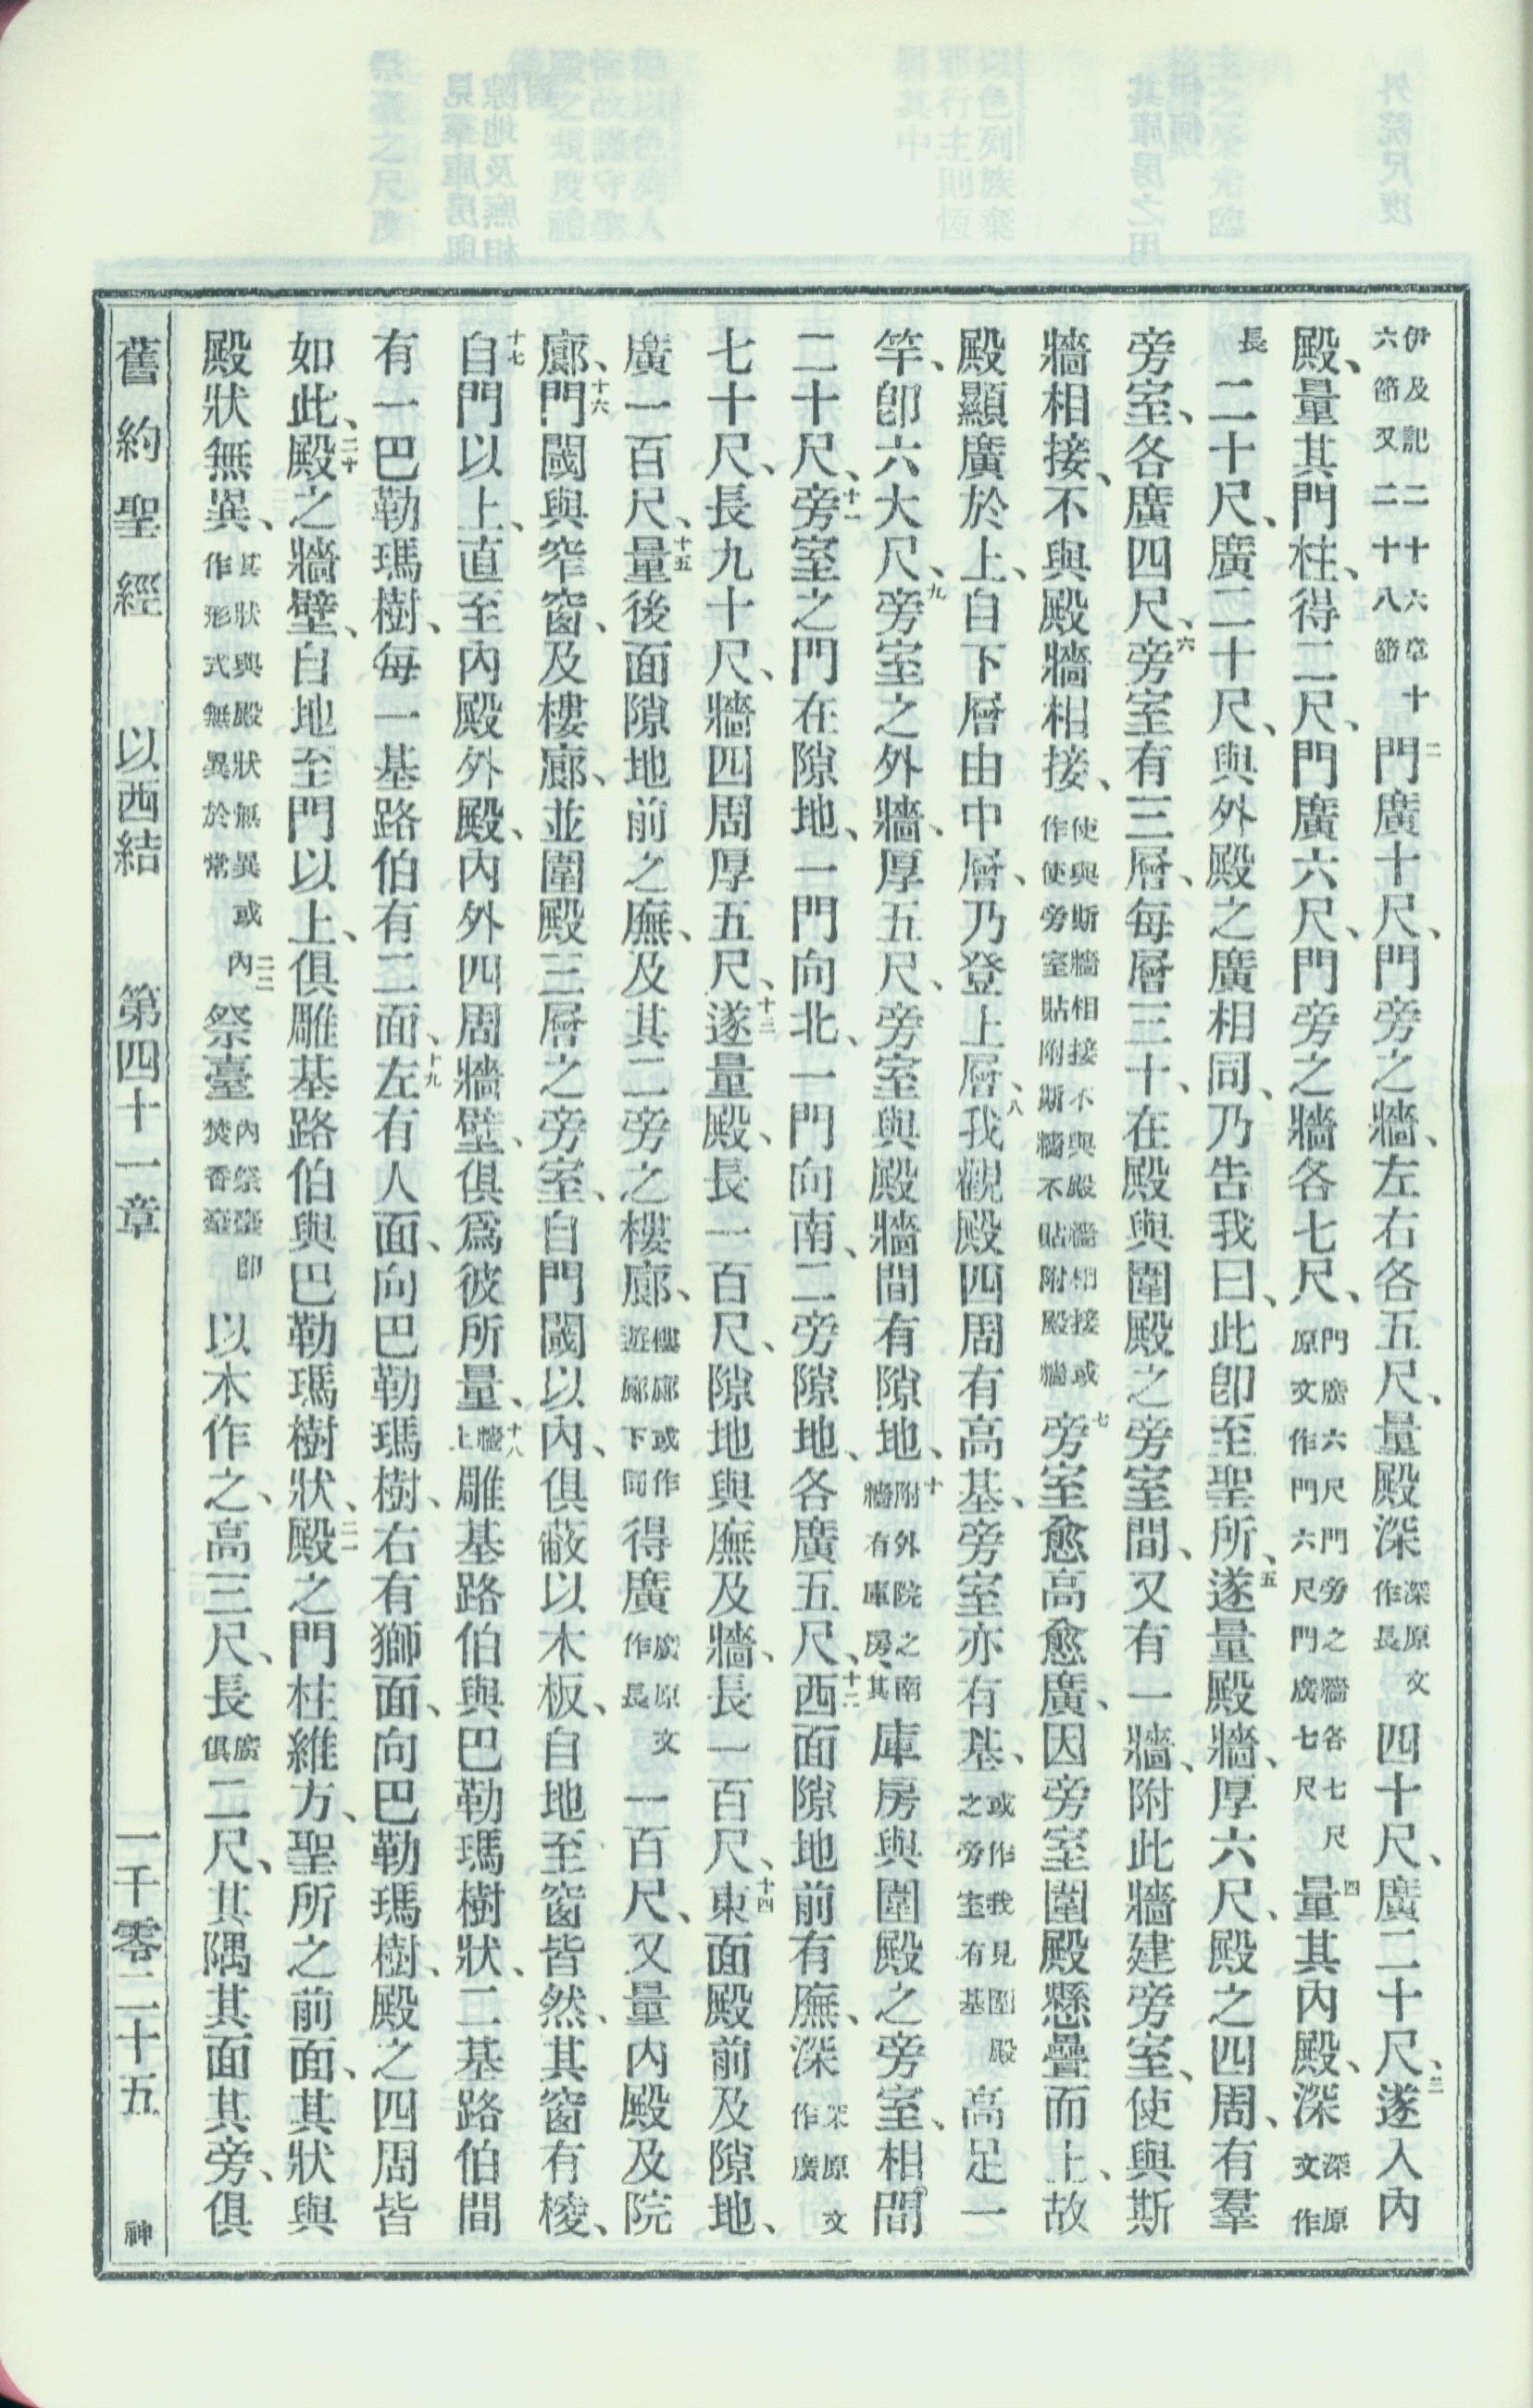 伊及記二十六章十六節又二十八節二門廣十尺、門旁之牆、左右各五尺、量殿深深原文作長四十尺、廣二十尺、三遂入內
殿、量其門柱、得二尺、門廣六尺、門旁之牆各七尺、門廣六尺門旁之牆各七尺原文作門六尺門廣七尺四量其內殿、深深原文作
長二十尺、廣二十尺、與外殿之廣相同、乃告我曰、此卽至聖所、五遂量殿牆、厚六尺、殿之四周、有羣
旁室、各廣四尺、六旁室有三層、每層三十、在殿與圍殿之旁室間、又有一牆、附此牆建旁室、使與斯
牆相接、不與殿牆相接、使與斯牆相接不與殿牆相接或作使旁室貼附斯牆不貼附殿牆七旁室愈高愈廣、因旁室圍殿懸疊而上、故
殿顯廣於上、自下層由中層、乃登上層、八我觀殿四周有高基、旁室亦有基、或作我見圍殿之旁室有基高足一
竿、卽六大尺、九旁室之外牆、厚五尺、旁室與殿牆間有隙地、十附外院之南牆有庫房、其庫房與圍殿之旁室、相間
二十尺、十一旁室之門在隙地、一門向北、一門向南、二旁隙地、各廣五尺、十二西面隙地前有廡、深深原文作廣
七十尺、長九十尺、牆四周厚五尺、十三遂量殿、長一百尺、隙地與廡及牆、長一百尺、十四東面殿前及隙地、
廣一百尺、十五量後面隙地前之廡、及其二旁之樓廊、樓廊或作遊廊下同得廣廣原文作長一百尺、又量內殿及院
廊、十六門閾與窄窗、及樓廊、並圍殿三層之旁室、自門閾以內、俱蔽以木板、自地至窗皆然、其窗有棱、
十七自門以上、直至內殿外殿、內外四周牆壁、俱爲彼所量、十八牆上雕基路伯與巴勒瑪樹狀、二基路伯間
有一巴勒瑪樹、每一基路伯有二面、十九左有人面、向巴勒瑪樹、右有獅面、向巴勒瑪樹、殿之四周皆
如此、二十殿之牆壁、自地至門以上、俱雕基路伯與巴勒瑪樹狀、二一殿之門柱維方、聖所之前面、其狀與
殿狀無異、其狀與殿狀無異或作形式無異於常二二內祭臺內祭臺卽焚香臺以木作之、高三尺、長廣俱二尺、其隅其面其旁、俱
舊約聖經 以西結 第四十一章 一千零二十五 神